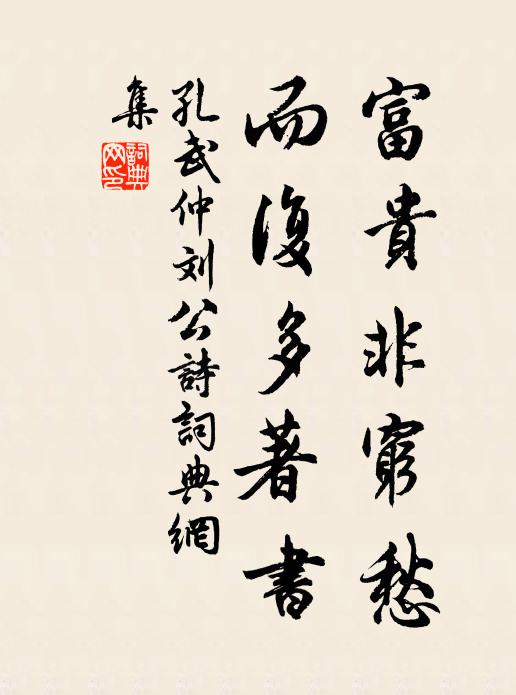 富貴非窮愁
而復多著書
孔武仲刘公詩詞典網
集
詞典網印